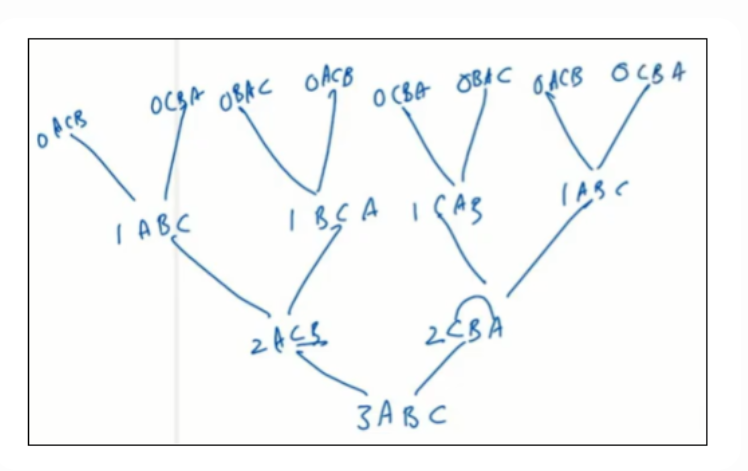 0 ACB 0CBA 0BAC 0ACB 0CBA 0BAC 0ACB 0CBA
1 ABC 1 BCA 1 CAB 1ABC
2ACB 2CBA
3ABC